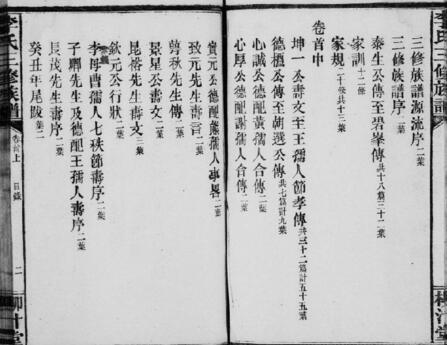 三修族譜源流序二葉
三修族譜序一葉
泰生公傳至碧峯傳共十八篇三十二葉
家訓十二條
家規二十條共十三葉
卷首中
坤一公壽文主王孺人節孝傳共三十二篇計五十五葉
德植公傳至朝選公傳共七篇計九葉
心誠公德配黃孺人合傳二葉
心厚公德配謝孺人合傳二葉
貴元公德配熊孺人事畧二葉
致元先生壽言二葉
蔚秋先生傳二葉
景星公壽文二葉
昆裕先生壽文三葉
欽元公行狀二葉
李母曹孺人七秩節壽序二葉
子聊先生及德配王孺人壽序二葉
辰茂先生壽序二葉
癸丑年尾跋二葉
李氏三修族譜
卷首上
目錄
二
柳汁堂